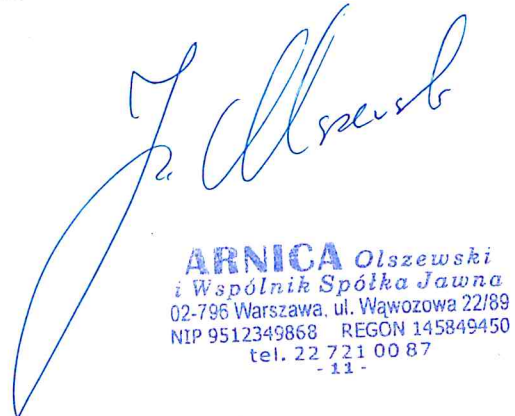 Olszewski
ARNICA Olszewski
i Wspólnik Spółka Jawna
02-796 Warszawa, ul. Wąwozowa 22/89
NIP 9512349868 REGON 145849450
tel. 22 721 00 87
- 11 -